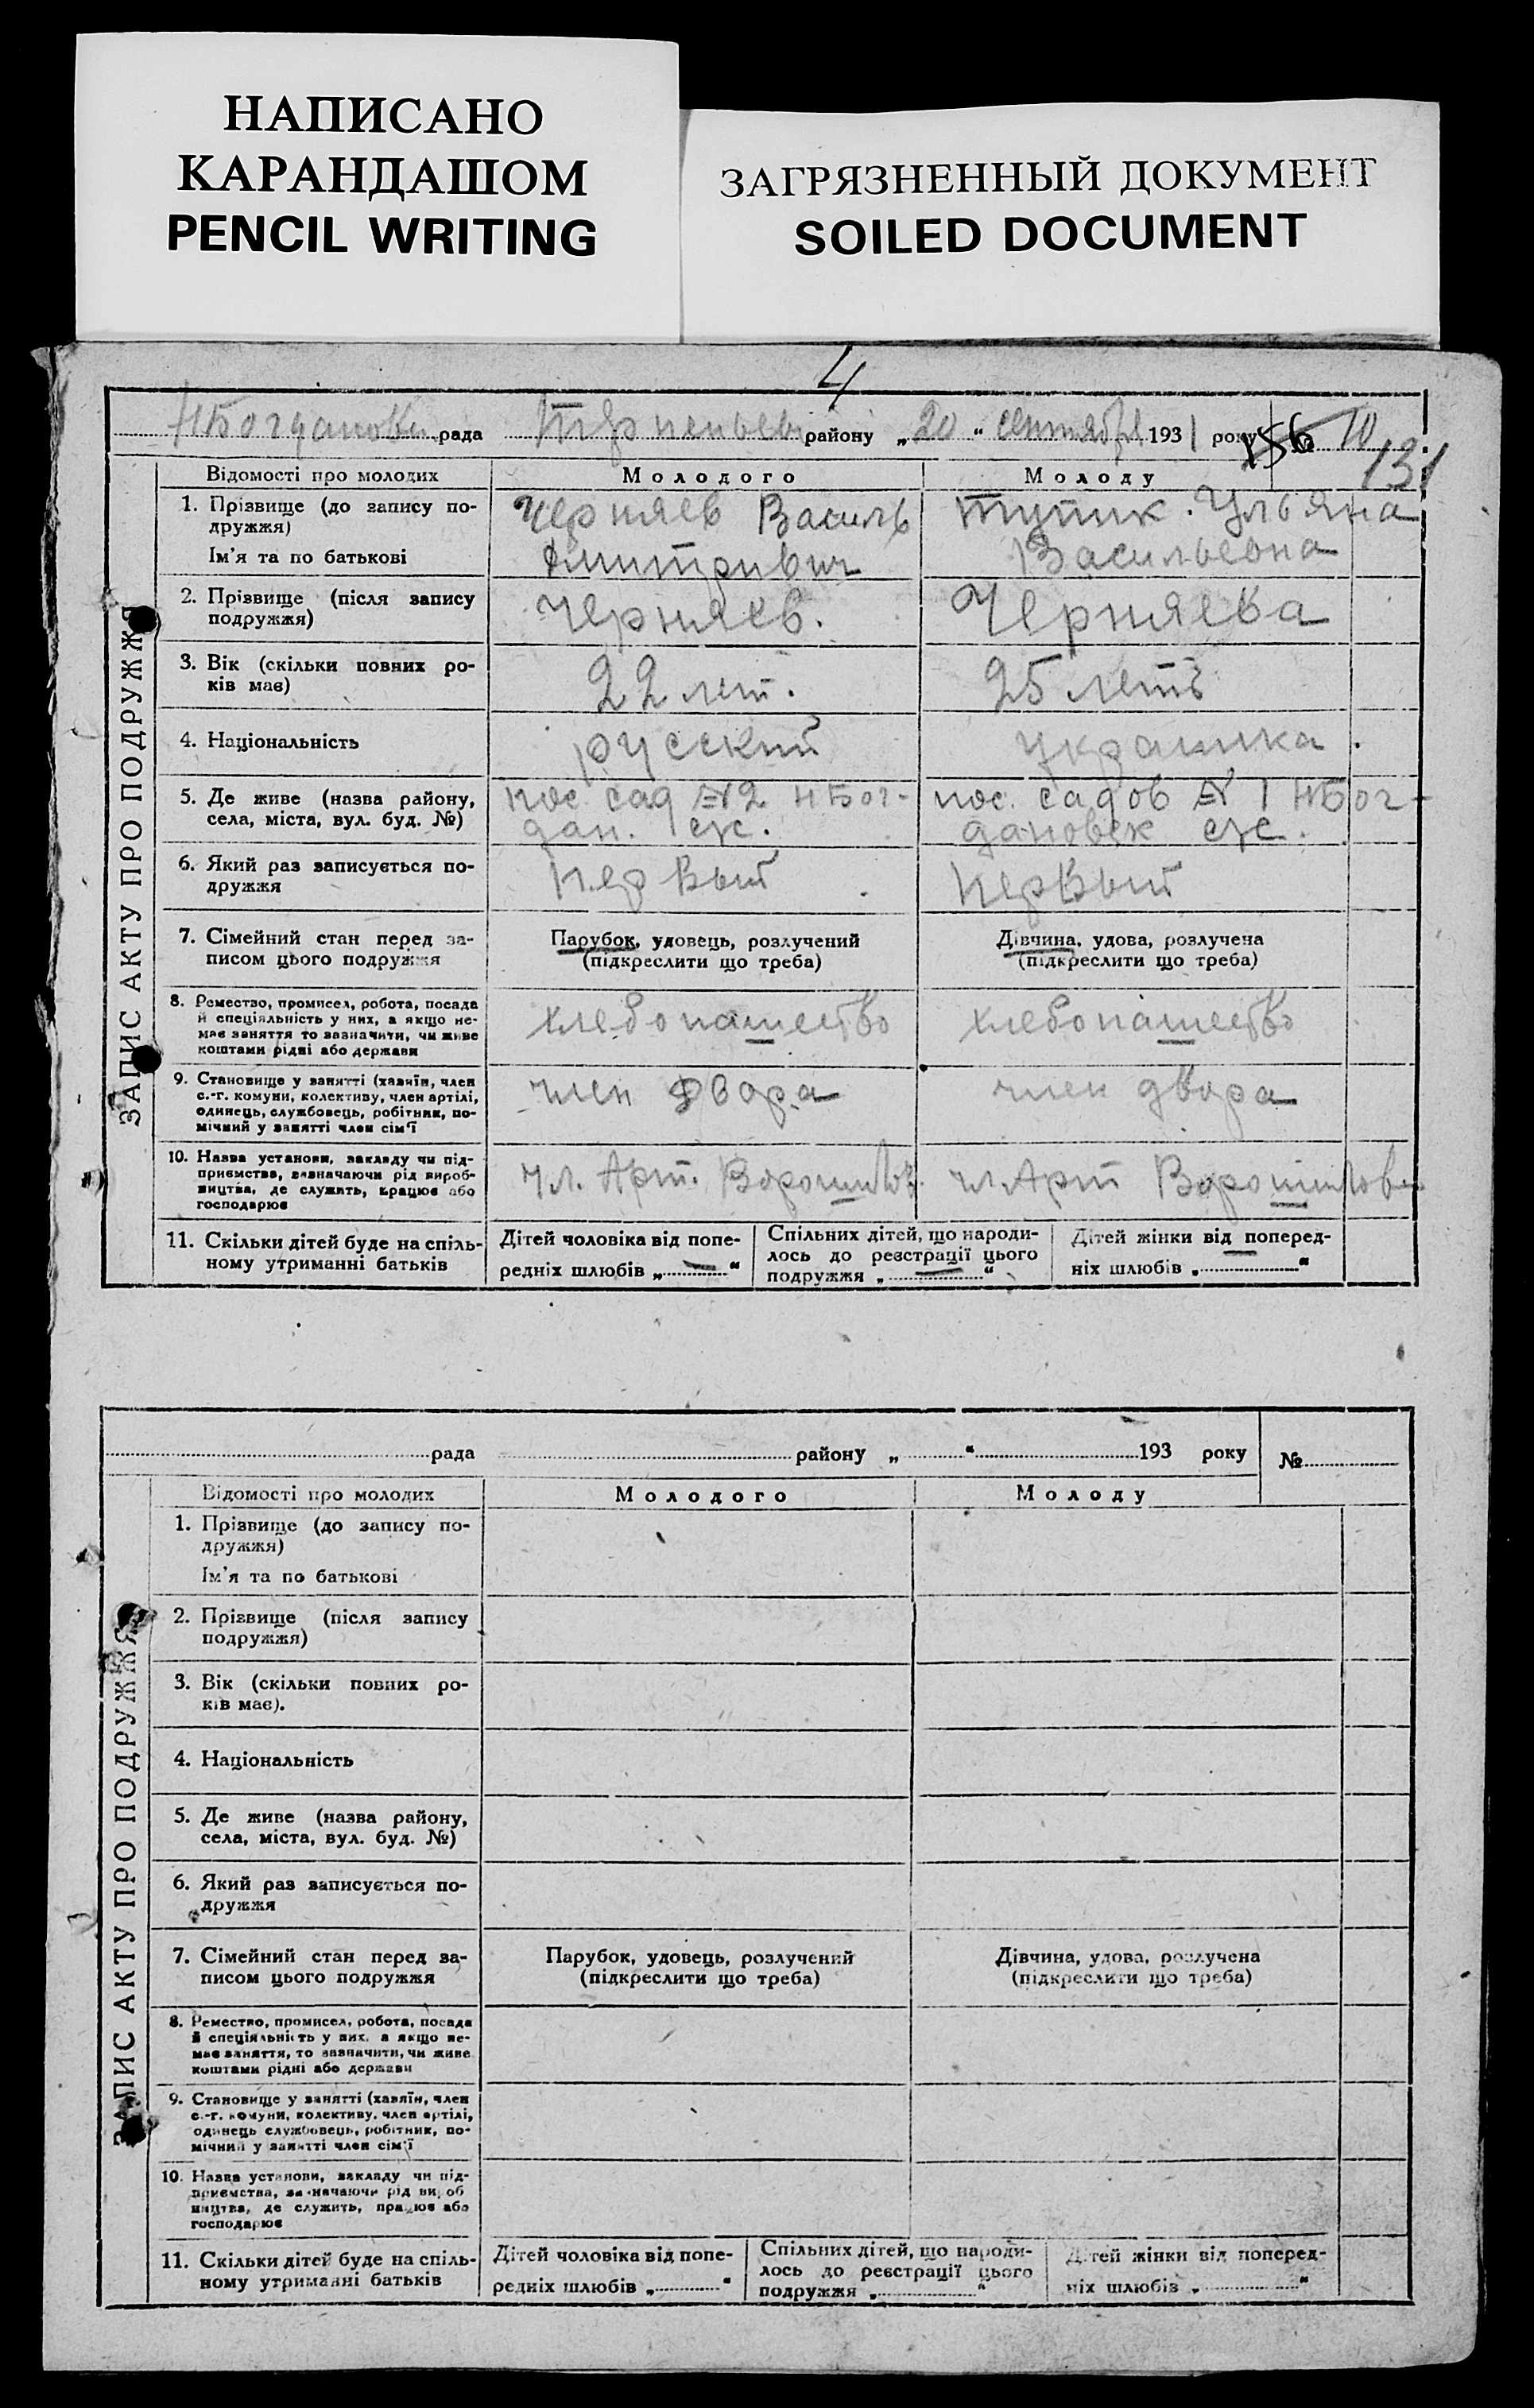 НАПИСАНО
КАРАНДАШОМ
PENCIL WRITING
ЗАГРЯЗНЕННЫЙ ДОКУМЕНТ
SOILED DOCUMENT
4
НБогдановск рада району „20“ сентября 1931 року № 10
156
131
ЗАПИС АКТУ ПРО ПОДРУЖЖЯ
Відомості про молодих Молодого Молоду
1. Прізвище (до запису по-
дружжя)
Ім'я та по батькові
Черняев Василь
Дмитривич
Тупик. Ульяна
Васильевна
2. Прізвище (після запису
подружжя)
Черняев.
Черняева
3. Вік (скільки повних ро-
ків має)
22 лет.
25 летъ
4. Національність
русский
украинка.
5. Де живе (назва району,
села, міста, вул. буд. №)
пос. сад №2 НБог-
дан. с/с.
пос. садов № 1 НБог-
дановск с/с.
6. Який раз записується по-
дружжя
первый
первый
7. Сімейний стан перед за-
писом цього подружжя
Парубок, удовець, розлучений
(підкреслити що треба)
Дівчина, удова, розлучена
(підкреслити що треба)
8. Ремество, промисел, робота, посада
й спеціяльність у них, а якщо не-
має заняття то зазначити, чи живе
коштами рідні або держави
хлебопашество
хлебопашество
9. Становище у занятті (хазяїн, член
с.-г. комуни, колективу, член артілі,
одинець, службовець, робітник, по-
мічний у занятті член сім'ї
член двора
член двора
10. Назва установи, закладу чи під-
приємства, зазначаючи рід вироб-
ництва, де служить, працює або
господарює
чл. Арт. Ворошилов.
чл. Арт Ворошилова
11. Скільки дітей буде на спіль-
ному утриманні батьків
Дітей чоловіка від попе-
редніх шлюбів „—“
Спільних дітей, що народи-
лось до реєстрації цього
подружжя „—“
Дітей жінки від поперед-
ніх шлюбів „“
рада району „“ 193 року №
ЗАПИС АКТУ ПРО ПОДРУЖЖЯ
Відомості про молодих Молодого Молоду
1. Прізвище (до запису по-
дружжя)
Ім'я та по батькові
2. Прізвище (після запису
подружжя)
3. Вік (скільки повних ро-
ків має).
4. Національність
5. Де живе (назва району,
села, міста, вул. буд. №)
6. Який раз записується по-
дружжя
7. Сімейний стан перед за-
писом цього подружжя
Парубок, удовець, розлучений
(підкреслити що треба)
Дівчина, удова, розлучена
(підкреслити що треба)
8. Ремество, промисел, робота, посада
й спеціяльність у них, а якщо не-
має заняття, то зазначити, чи живе
коштами рідні або держави
9. Становище у занятті (хазяїн, член
с.-г. комуни, колективу, член артілі,
одинець службовець, робітник, по-
мічний у занятті член сім'ї
10. Назва установи, закладу чи під-
приємства, зазначаючи рід вироб
ництва, де служить, працює або
господарює
11. Скільки дітей буде на спіль-
ному утриманні батьків
Дітей чоловіка від попе-
редніх шлюбів „“
Спільних дітей, що народи-
лось до реєстрації цього
подружжя „“
Дітей жінки від поперед-
ніх шлюбів „“